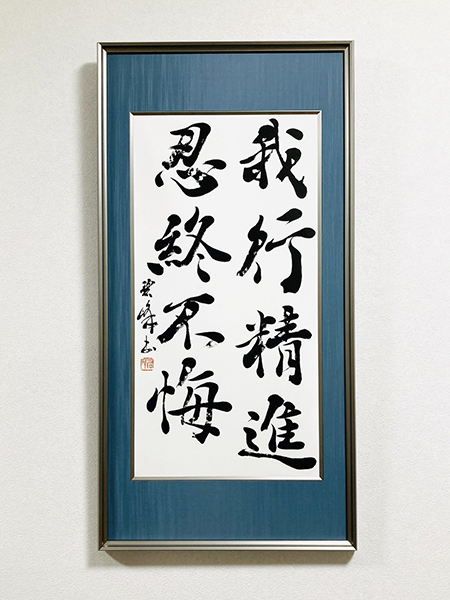 我行精進
忍終不悔